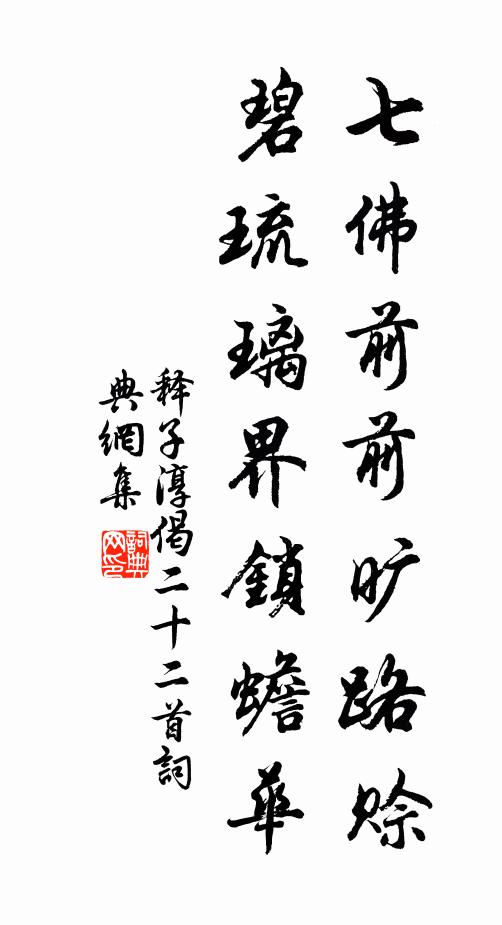 七佛前前旷路赊
碧琉璃界鎖蟾華
释子淳偈二十二首詞
典網集
詞典网印